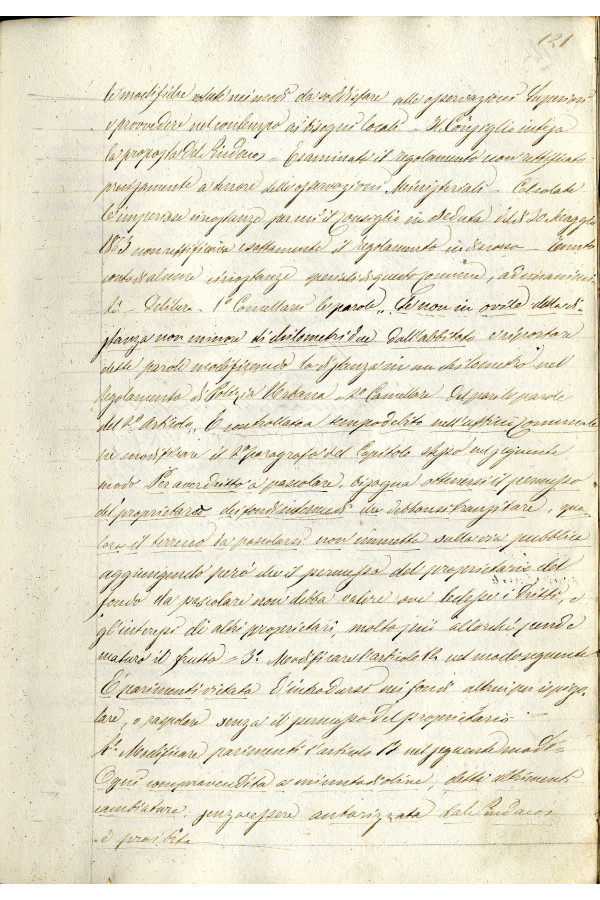 121
le modifiche volute nei modi da soddisfare alle osservazioni Superiori
e provvedere nel contempo ai bisogni locali - Il Consiglio intesa
la proposta del Sindaco - Esaminato il regolamento non rettificato
pienamente a tenore delle osservazioni Ministeriali - Calcolate
le imperiose circostanze per cui il Consiglio in seduta del dì 20 Maggio
1863 non rettificava esattamente il regolamento in discorso - Tenuto
conto di alcune circostanze speciali di questo Comune, ad unanimi
tà - Delibera - 1° Cancellarsi le parole „ Se non in ovile della di
stanza non minore di chilometri due dall'abbitato e riportare
dette parole modificando la distanza in un chilometro nel
regolamento di Polizia Urbana - 2° Cancellare del parole parole
del 2° articolo, E controllato a tempo debito nell'ufficio Comunale
e modificare il 2° paragrafo del Capitolo stesso nel seguente
modo Per aver dritto a pascolare, bisogna ottenersi il permesso
del proprietario dei fondi intermedi che debbonsi transitare, qua
lora il terreno da pascolarsi non immetta sulla via pubblica
aggiungendo però che il permesso del proprietario del
fondo da pascolare non debba valere ove ledesse i dritti, e
gl'interessi di altri proprietari, molto più allorchè pende
maturo il frutto - 3° Modificare l'articolo 12 nel modo seguente
È parimenti vietato d'introdursi nei fondi altrui per ispigo
lare, o raspolare senza il permesso del proprietario -
4° Modificare parimenti l'articolo 13 nel seguente modo -
Ogni compravendita a minuto d'olive, detti altrimenti
senza essere autorizzata dal Sindaco
è proibita